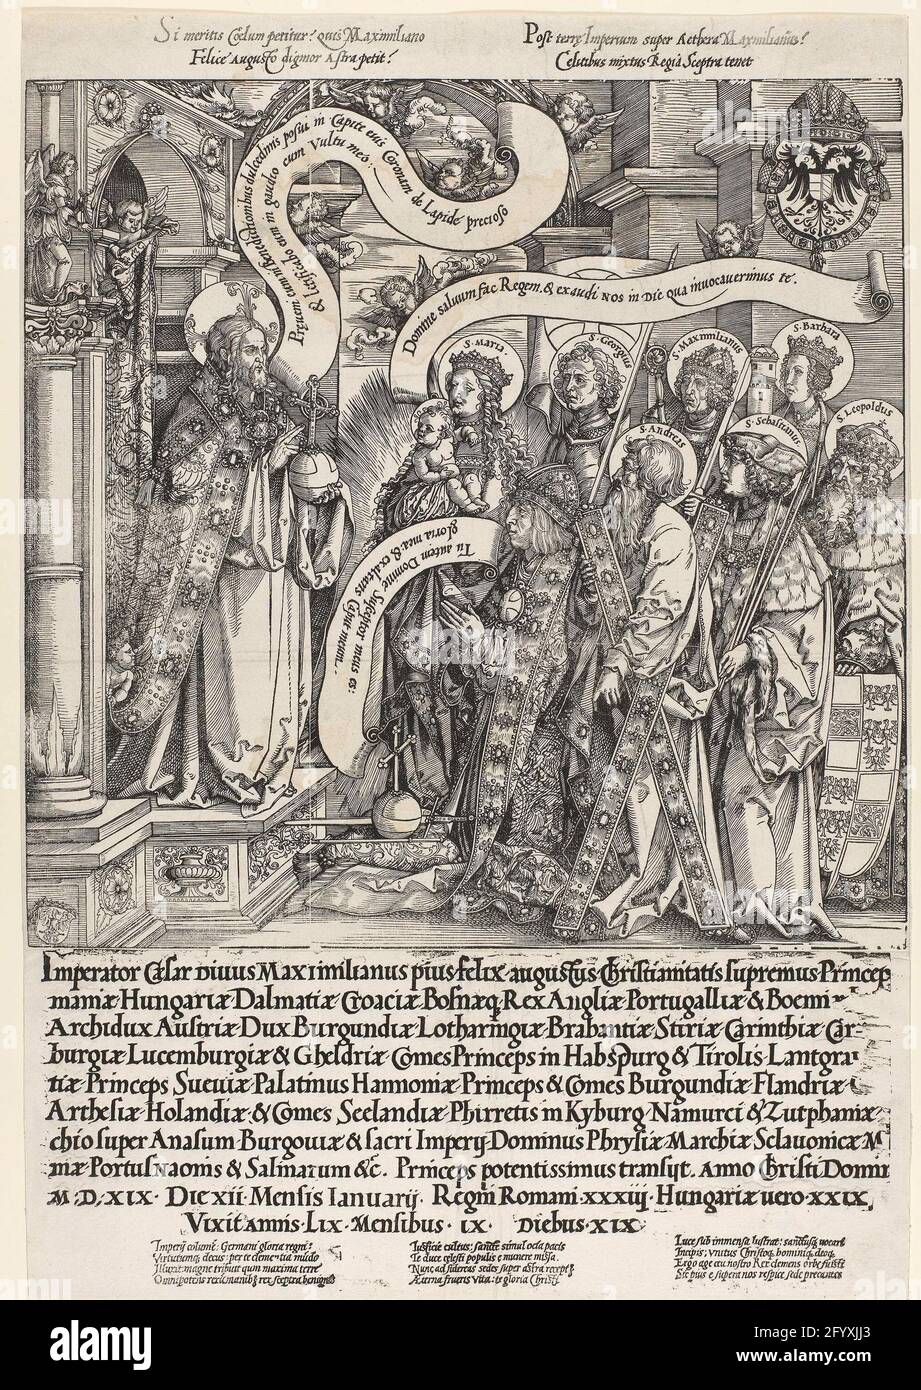 Si meritis Cœlum petitur? quis Maximiliano
Felice Augusto digmor Astra petit?
Post terræ Imperium super Aethera Maximilianus?
Celitibus mixtus Regia Sceptra tenet
Posui in Capite eius Coronam de Lapide precioso
& letificabo eum in gaudio cum Vultu meo:
Domine salvum fac Regem. & exaudi nos in Die qua invocaverimus te.
S. Maria.
S. Georgius
S. Maximilianus
S. Barbara
S. Andreas
S. Sebastianus
S. Leopoldus
Tu autem Domine Susceptor meus es:
gloria mea & exaltans Caput meum.
Imperator Cæsar Divus Maximilianus pius felix augustus Christianitatis supremus Princeps
mamæ Hungariæ Dalmatiæ Croaciæ Bosnæq; Rex Angliæ Portugalliæ & Boemi
Archidux Austriæ Dux Burgundiæ Lotharingiæ Brabantiæ Stiriæ Carinthiæ Car-
burgiæ Lucemburgiæ & Gheldriæ Comes Princeps in Habspurg & Tirolis Lantgra
tiæ Princeps Sueviæ Palatinus Hannoniæ Princeps & Comes Burgundiæ Flandriæ
Arthesiæ Holandiæ & Comes Seelandiæ Phirretis in Kyburg Namurci & Zutphaniæ
chio super Anasum Burgoviæ & sacri Imperij Dominus Phrysiæ Marchiæ Sclavonicæ M
niæ Portusnaonis & Salinarum &c. Princeps potentissimus transijt. Anno Christi Domini
M.D.XIX. Die xii Mensis Ianuarij. Regni Romani. xxxiiij. Hungariæ vero. xxix.
Vixit annis. Lix. Mensibus. ix. Diebus. xix
Imperij columen: Germani gloria regni:
Virtutemq; decus: per te clementia mundo
Illuxit magne tribuit quem maxima terræ
Omnipotens
Iusticie cultus: sancte simul ocia pacis
Te duce celesti populis e munere missa.
Nunc ad sidereas sedes super astra receptus
Æterna frueris vita: te gloria Christi
Luce sub immensa lustrat: sanctusq; vocaris
Incipis: unitus Christoq; hominiq; deoq;
Ergo age ceu nostro Rex clemens orbe fuisti
Sic pius e supera nos respice sede precantes
alamy
Image ID: 2FYXJJ3
www.alamy.com